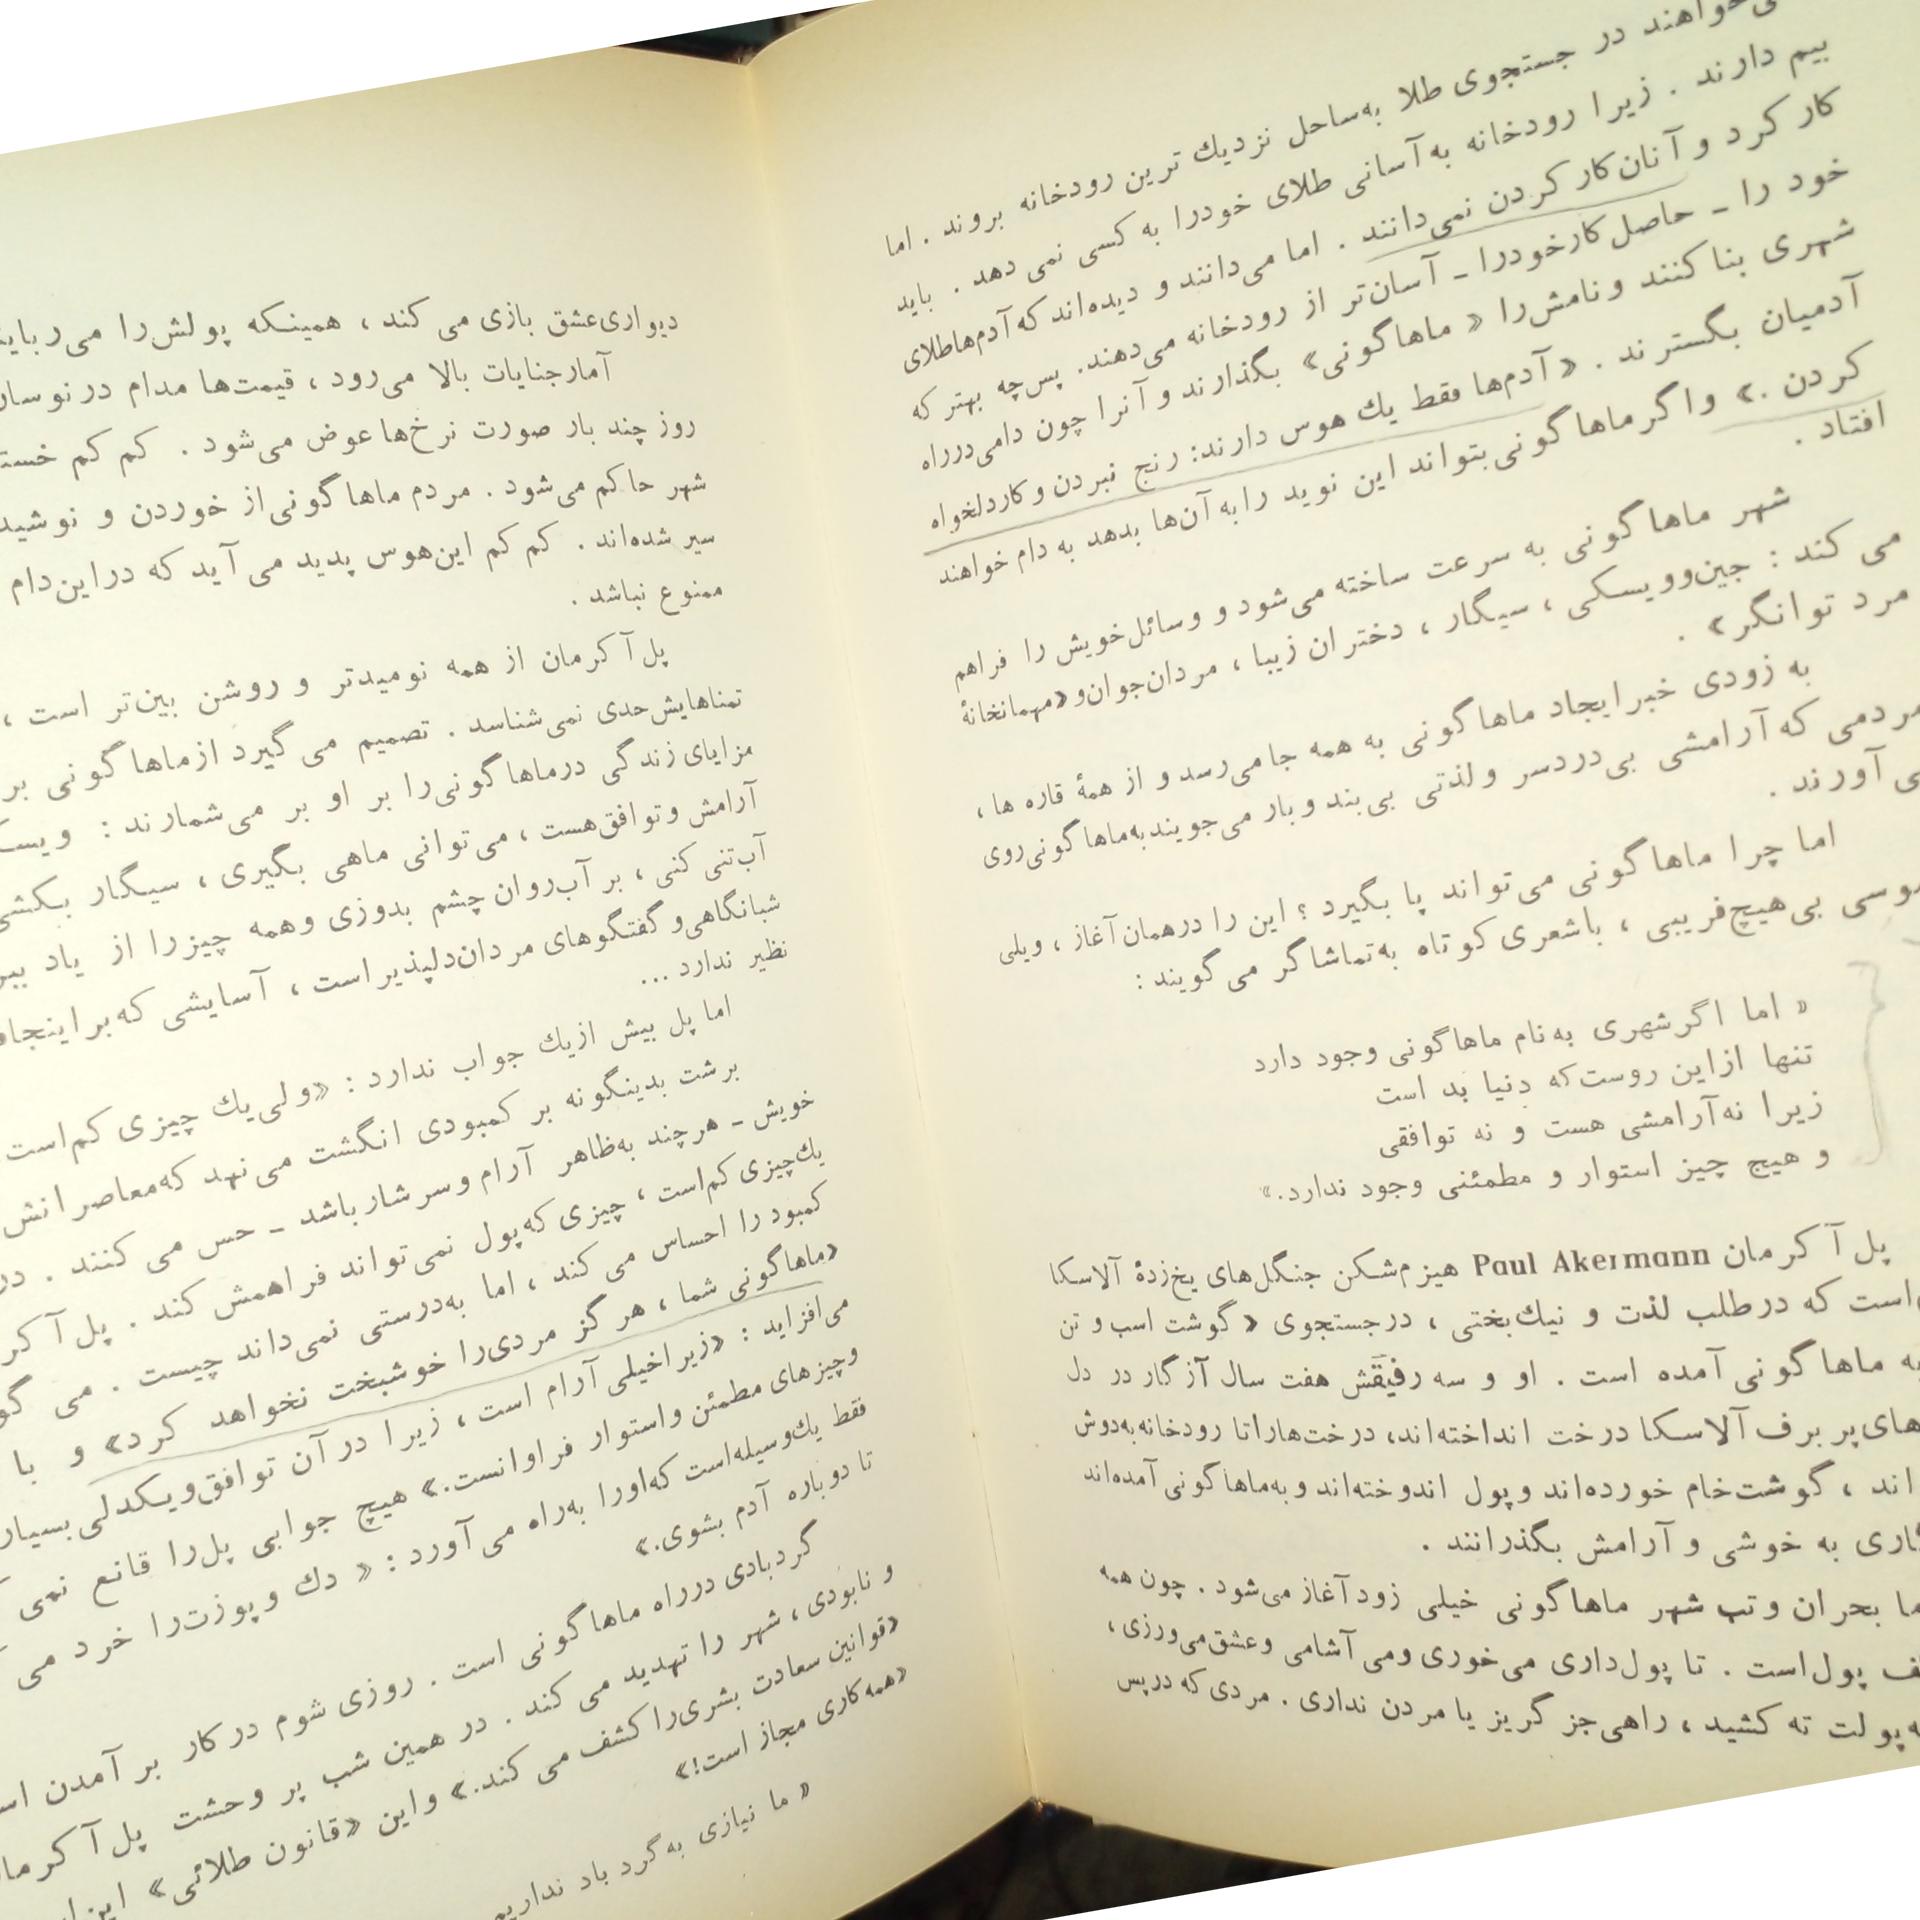 ‌خواهند در جستجوی طلا به‌ساحل نزدیك ترین رودخانه بروند . اما
بیم دارند . زیرا رودخانه به‌آسانی طلای خودرا به کسی نمی دهد . باید
کار کرد و آنان‌کار کردن نمی‌دانند . اما می‌دانند و دیده‌اند که آدم‌هاطلای
خود را ـ حاصل کارخودرا ـ آسان‌تر از رودخانه می‌دهند. پس‌چه بهتر که
شهری بنا کنند و نامش‌را « ماهاگونی» بگذارند و آنرا چون دامی‌درراه
آدمیان بگسترند . « آدم‌ها فقط یك هوس دارند: رنج نبردن و کاردلخواه
کردن .» واگر ماهاگونی‌بتواند این نوید رابه آن‌ها بدهد به دام خواهند
افتاد .
شهر ماهاگونی به سرعت ساخته می‌شود و وسائل‌خویش را فراهم
می کند : جین‌وویسکی ، سیگار ، دختران زیبا ، مردان‌جوان‌و«مهمانخانهٔ
مرد توانگر» .
به زودی خبرایجاد ماهاگونی به همه جا‌می‌رسد و از همهٔ قاره ها ،
مردمی که آرامشی بی‌دردسر و لذتی بی‌بند و بار می‌جویندبه‌ماهاگونی‌روی
آورند .
اما چرا ماهاگونی می‌تواند پا بگیرد ؟ این را درهمان‌آغاز ، ویلی
بی‌هیچ‌فریبی ، باشعری کوتاه به‌تماشاگر می گویند :
« اما اگرشهری به‌نام ماهاگونی وجود دارد
تنها ازاین روست‌که دنیا بد است
زیرا نه‌آرامشی هست و نه توافقی
و هیچ چیز استوار و مطمئنی وجود ندارد.»
پل آکرمان Paul Akermann هیزم‌شکن جنگل‌های یخ‌زدهٔ آلاسکا
است که درطلب لذت و نیك‌بختی ، درجستجوی « گوشت اسب و تن
به ماهاگونی آمده است . او و سه رفیقش هفت سال آزگار در دل
های‌پر برف آلاسکا درخت انداخته‌اند، درخت‌هاراتا رودخانه‌به‌دوش
اند ، گوشت‌خام خورده‌اند و پول اندوخته‌اند و به‌ماهاگونی آمده‌اند
به خوشی و آرامش بگذرانند .
بحران و تب شهر ماهاگونی خیلی زودآغاز می‌شود . چون همه
پول‌است . تا پول‌داری می‌خوری ومی آشامی وعشق‌می‌ورزی،
پولت ته کشید ، راهی‌جز گریز یا مردن نداری . مردی که درپس
دیواری‌عشق بازی می کند ، همینکه پولش‌را می‌رباید
آمارجنایات بالا می‌رود ، قیمت‌ها مدام درنوسان
روز چند بار صورت نرخ‌ها عوض می‌شود . کم کم
شهر حاکم می‌شود . مردم ماهاگونی‌از خوردن و
سیر شده‌اند . کم کم این‌هوس پدید می آید که دراین‌دام
ممنوع نباشد .
پل‌آکرمان از همه نومیدتر و روشن بین‌تر است ،
تمناهایش‌حدی نمی‌شناسد . تصمیم می گیرد ازماهاگونی
مزایای زندگی درماهاگونی‌را بر او بر می‌شمارند :
آرامش وتوافق‌هست ، می‌توانی ماهی بگیری ، سیگار
آب‌تنی کنی ، بر آب‌روان چشم بدوزی وهمه چیزرا از یاد
شبانگاهی‌و گفتگوهای مردان‌دلپذیر است ، آسایشی که‌بر
نظیر ندارد ...
اما پل بیش ازیك جواب ندارد : «ولی‌یك چیزی کم‌است
برشت بدینگونه بر کمبودی انگشت می‌نهد که‌معاصرانش
خویش ـ هرچند به‌ظاهر آرام وسرشارباشد ـ حس می کنند .
یك‌چیزی کم‌است ، چیزی که‌پول نمی‌تواند فراهمش کند .
کمبود را احساس می کند ، اما به‌درستی نمی‌داند چیست . می
«ماهاگونی شما ، هر گز مردی‌را خوشبخت نخواهد کرد» و با
می‌افزاید : «زیراخیلی آرام است ، زیرا درآن توافق‌ویکدلی‌بسیار
وچیزهای مطمئن واستوار فراوانست.» هیچ جوابی پل‌را قانع نمی
فقط یك‌وسیله‌است که‌اورا به‌راه می آورد : « دك وپوزت‌را خرد می
تا دوباره آدم بشوی.»
گردبادی درراه ماهاگونی است . روزی شوم درکار برآمدن
و نابودی ، شهر را تهدید می کند . در همین شب پر وحشت
«قوانین سعادت بشری‌را کشف می کند.» واین «قانون طلائی»
«همه کاری مجاز است!»
« ما نیازی به‌گرد باد نداریم